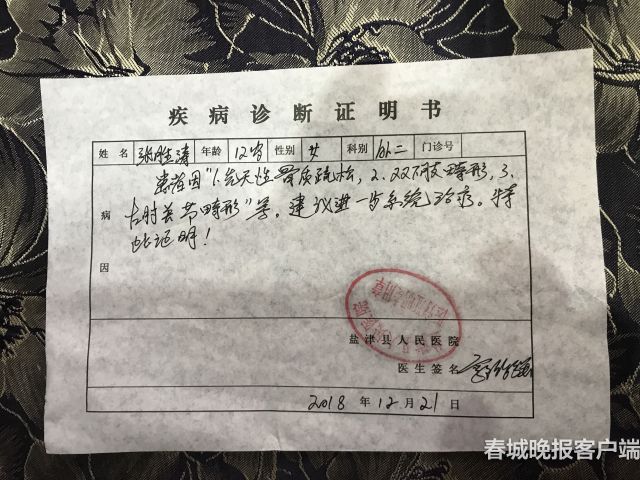 疾病诊断证明书
姓名 张胜涛 年龄 12岁 性别 女 科别 外二 门诊号
患者因"1.先天性骨质疏松，2.双下肢畸形，3.
病因
右肘关节畸形"等。建议进一步系统治疗。特
此证明！
盐津县人民医院
医生签名
2018年12月21日
春城晚报客户端